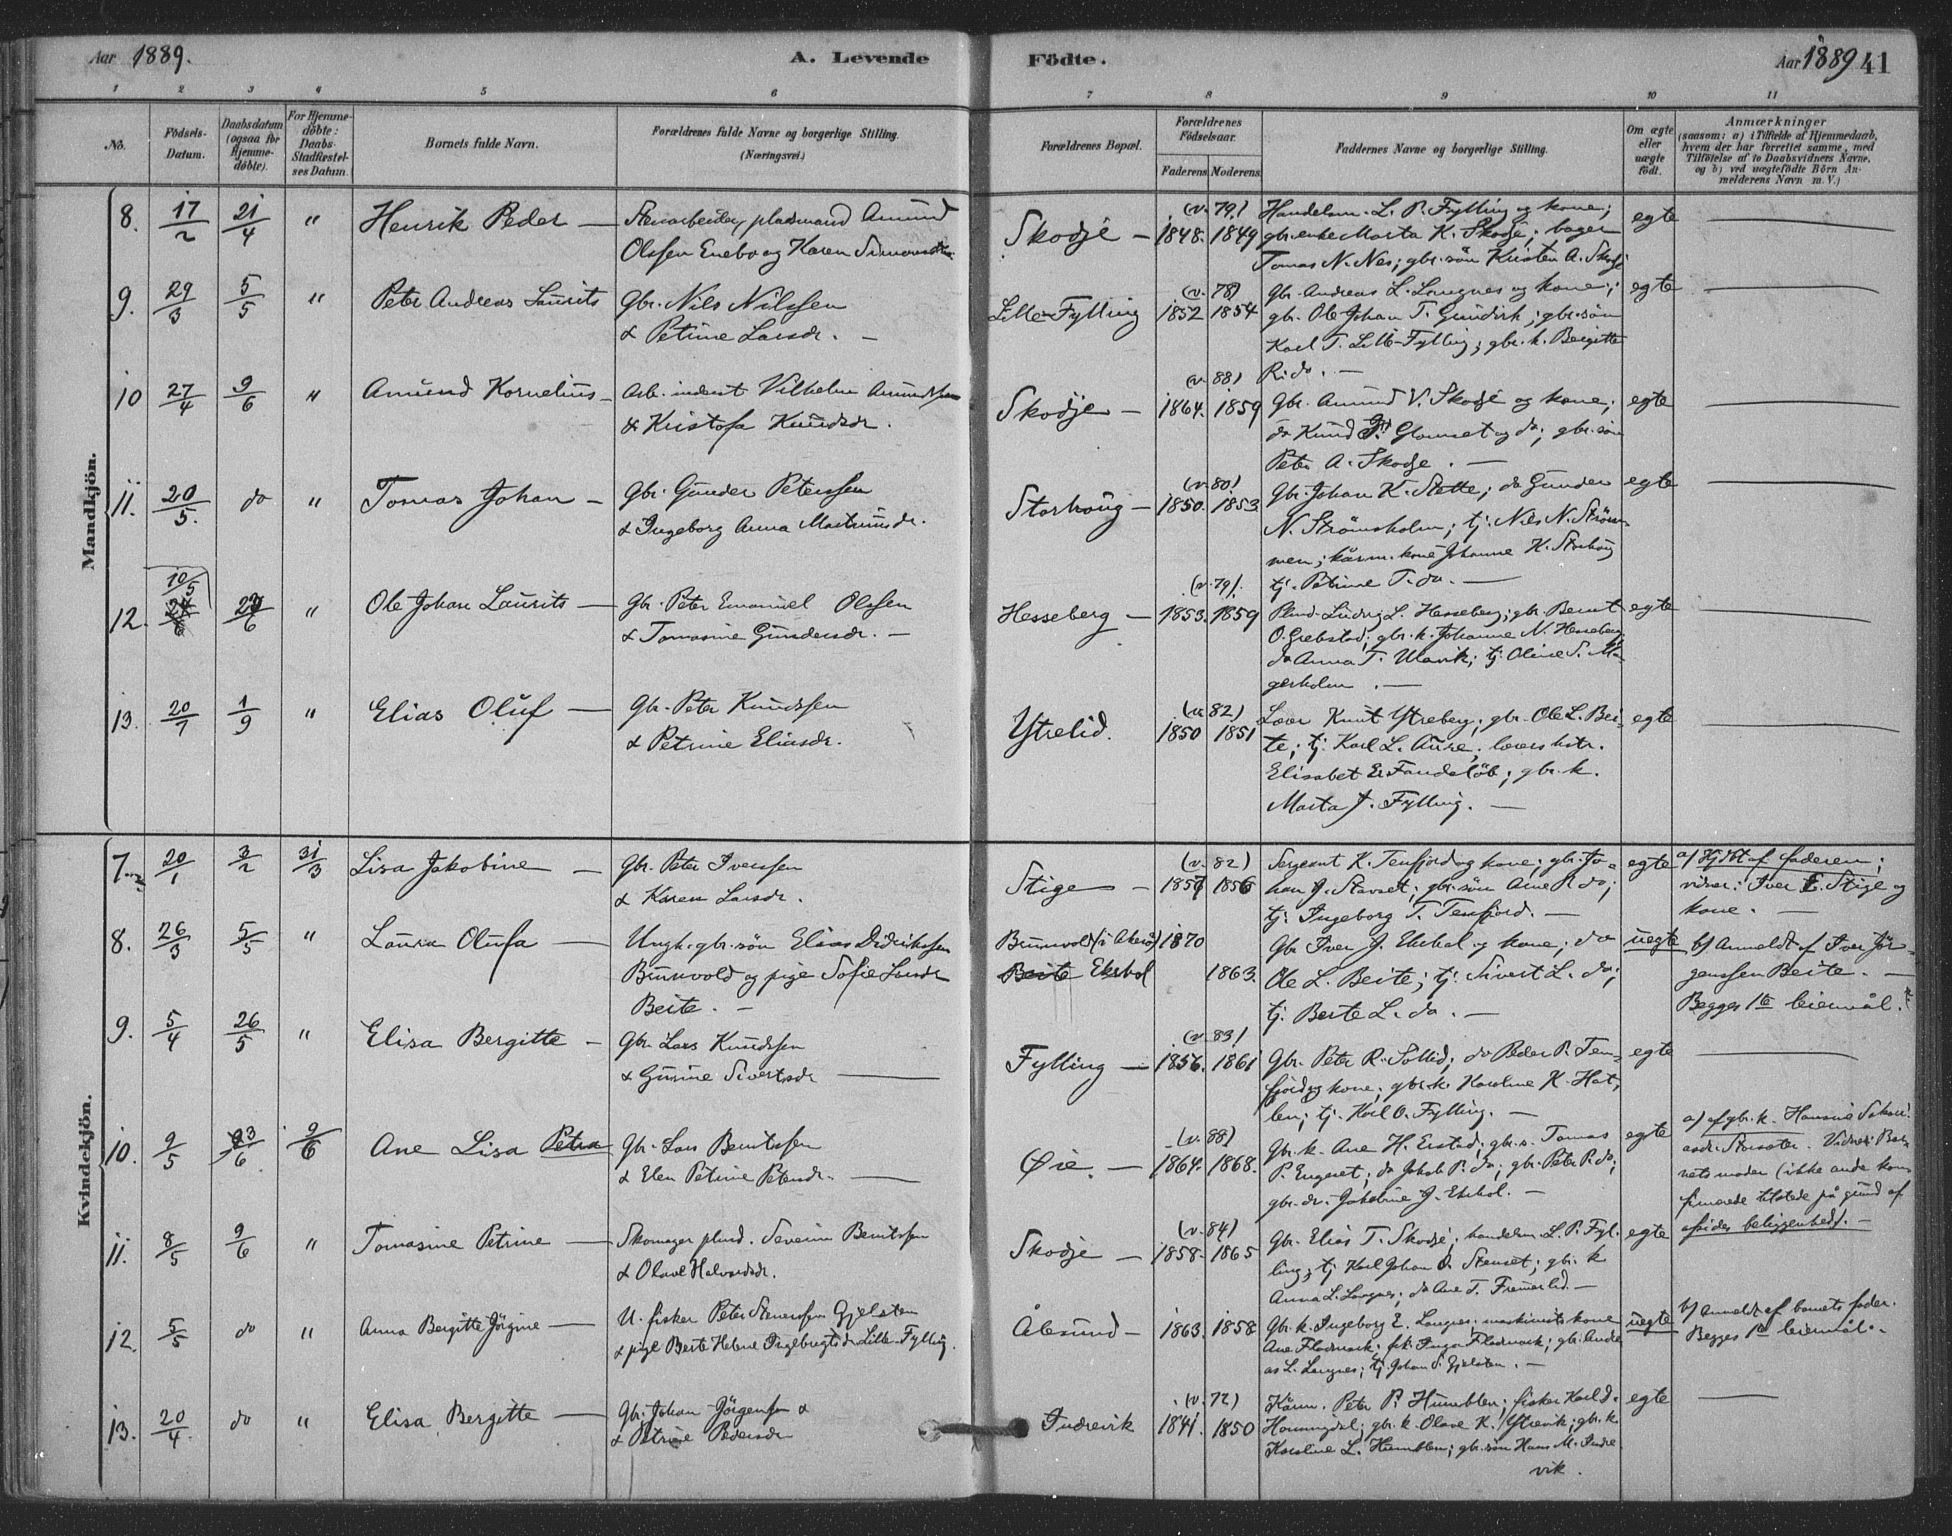 Aar 1889.
A. Levende
Födte.
Aar 1889 41
1 2 3 4 5 6 7 8 9 10 11
No.
Födsels-
Datum.
Daabsdatum
(ogsaa for
Hjemme-
döbte).
For Hjemme-
döbte:
Daabs-
Stadfæstel-
ses Datum.
Barnets fulde Navn.
Forældrenes fulde Navne og borgerlige Stilling.
(Næringsvei.)
Forældrenes Bopæl.
Forældrenes
Födselsaar.
Faderens Moderens
Faddernes Navne og borgerlige Stilling.
Om ægte
eller
uægte
født.
Anmærkninger
(saasom: a) i Tilfælde af Hjemmedaab,
hvem der har forrettet samme, med
Tilföielse af to Daabsvidners Navne,
og b) ved uægtefödte Börn An-
melderens Navn m. V.)
Mandkjön.
8. 17/2 21/4 " Henrik Peder —
Stenarbeider, pladsmand Amund
Olssen Enebo og Karen Simonsdtr.
Skodje — (v. 79) 1848. 1849
Handelsm. L. P. Fylling og kone;
gbr. enke Marta K. Skodje; bager
Tomas N. Nes; gbr. sön Kristen A. Skodje
egte
9. 29/3 5/5 " Peter Andreas Laurits
Gbr. Nils Nilssen
& Petrine Larsdr. —
Lille-Fylling (v. 78) 1852 1854
Gbr. Andreas L. Langnes og kone;
gbr. Ole Johan T. Gundirk; gbr. sön
Karl T. Lille-Fylling; gbr. k. Bergitte
R. do. —
egte
10 27/4 9/6 " Amund Kornelius —
Arb. inderst Vilhelm Amundssen
& Kristofa Knudsdr.
Skodje — (v. 88) 1864. 1859
Gbr. Amund V. Skodje og kone;
do Knud P. Glomset og do; gbr. sön
Peter A. Skodje. —
egte
11. 20/5. do " Tomas Johan —
Gbr. Gunder Peterssen
& Ingeborg Anna Martinusdr.
Storhaug — (v. 80) 1850. 1853.
Gbr. Johan K. Stette; do Gunder
N. Strömsholm; tj. Nils N. Ström-
men; kårm. kone Johanne K. Storhaug
tj. Petrine T. do. —
egte
12. 10/5 23/6 " Ole Johan Laurits —
Gbr. Peter Emanuel Olssen
& Tomasine Gundersdr. —
Hesseberg — (v. 79). 1853. 1859
Plmd. Ludvig L. Hesseberg; gbr. Bernt
O. Grebstad; gbr. k. Johanne N. Hesseberg
do Anna T. Ulavik; tj. Oline S. Ma-
gerholm. —
egte
13. 20/7 1/9 " Elias Oluf —
Gbr. Peter Knudssen
& Petrine Eliasdr.
Ytrelid. (v. 82) 1850 1851
Lærer Knut Ytreberg; gbr. Ole L. Bei-
te; tj. Karl L. Aure; lærers hstr.
Elisabet E. Fandelöb; gbr. k.
Marta J. Fylling. —
egte
Kvindekjön.
7. 20/1 3/2 31/3 Lisa Jakobine —
Gbr. Peter Iverssen
& Karen Larsdr.
Stige — (v. 82) 1857 1856
Sergeant K. Tenfjord og kone; gbr. Jo-
han J. Stavset; gbr. sön Arne P. do;
tj. Ingeborg T. Tenfjord. —
egte
a) Hjdbt af faderen;
vidner: Iver E. Stige og
kone. —
8. 26/3 5/5 " Laura Olufa —
Ungk. gbr. sön Elias Didrikssen
Brunvold og pige Sofie Larsdr
Beite. —
Brunvold (i Akerö) 1870
Beite Ekshol 1863.
Gbr Iver J. Ekshol og kone; do
Ole L. Beite; tj. Sivert L. do;
tj. Berte L. do. —
uegte
b) Anmeldt af Iver Jör-
genssen Beite. —
Begges 1te leiermål.
9. 5/4 26/5 " Elisa Bergitte —
Gbr. Lars Knudssen
& Gurine Sivertsdr —
Fylling — (v. 83) 1856. 1861
Gbr. Peter R. Sollid; do Peder P. Ten-
fjord og kone; gbr. k. Karoline K. Hat-
len; tj. Karl O. Fylling. —
egte
10. 9/5 23/6 9/6 Ane Lisa Petra
Gbr. Lars Berntssen
& Elen Petrine Petersdr. —
Øie. — (v. 88) 1864. 1868.
Gbr. k. Ane H. Erstad; gbr. s. Tomas
P. Engeset; do Jakob P. do; gbr. Peter P. do;
gbr. dr. Jakobine J. Ekshol. —
egte
a) af gbr. k. Hansine Sakari-
asdr. Vidner: Bar-
nets moder (ikke andre kon-
firmerede tilstede på grund af
afsides beliggenhed). —
11. 8/5 9/6 " Tomasine Petrine —
Skomager plmd. Severin Berntssen
& Olave Halvardsdr.
Skodje — (v. 84) 1858. 1865
Gbr. Elias T. Skodje; handelsm. L. P. Fyl-
ling; tj. Karl Johan O. Stenset; gbr. k
Anna L. Langnes; do Ane T. Fremerlid —
egte
12. 5/5 do " Anna Bergitte Jörgine —
U. fisker Peter Stenerssen Gjelsten
& pige Berte Helene Ingebrigtsdr. Lille-Fylling.
Ålesund — 1863. 1858.
Gbr. k. Ingeborg E. Langnes; maskinists kone
Ane Flademark; frk. Inga Flademark; gbr. Andre-
as L. Langnes; tj. Johan S. Gjelsten. —
uegte
b) Anmeldt af barnets fader.
Begges 1te leiermål. —
13. 20/4. do " Elisa Bergitte —
Gbr. Johan Jörgenssen &
& Petrine Pedersdr
Indrevik (v. 72) 1841. 1850
Kårm. Peter P. Humblen; fisker Karl d.
Honningdal; gbr. k. Olave K. Ytrevik; gbr. k
Karoline L. Humblen; gbr. sön Hans M. Indre-
vik.
egte